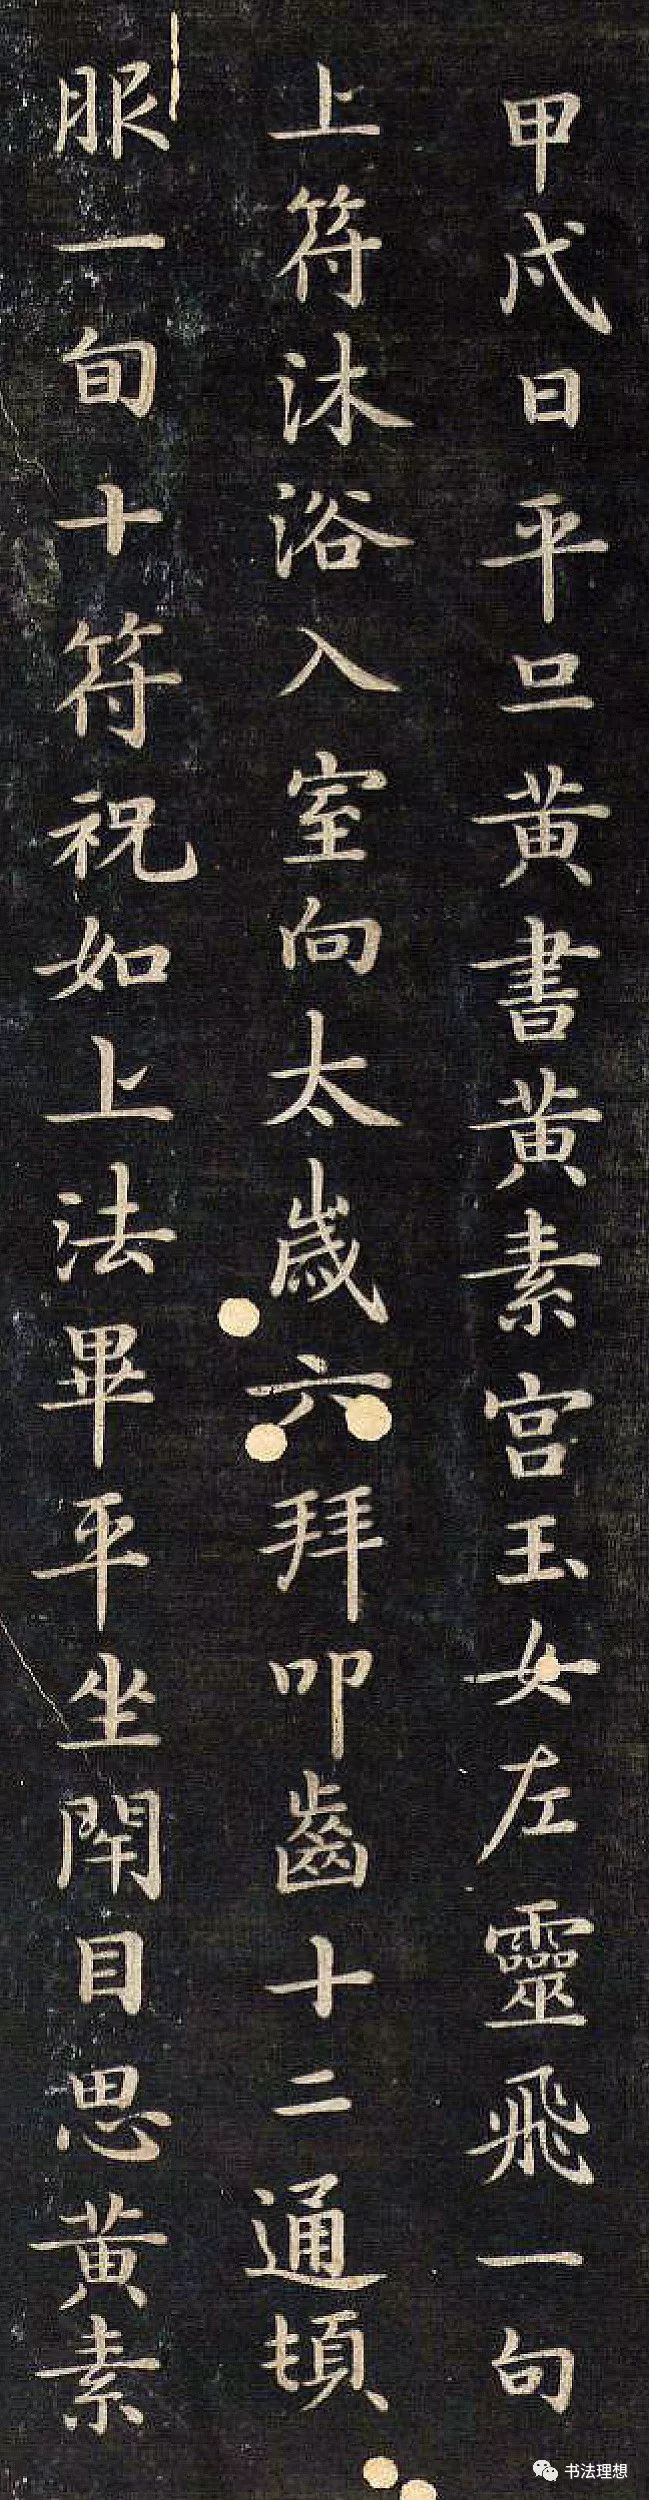 甲戌日平旦黄書黄素宫玉女左靈飛一旬
上符沐浴入室向太歲六拜叩齒十二通頓
服一旬十符祝如上法畢平坐閇目思黄素
书法理想